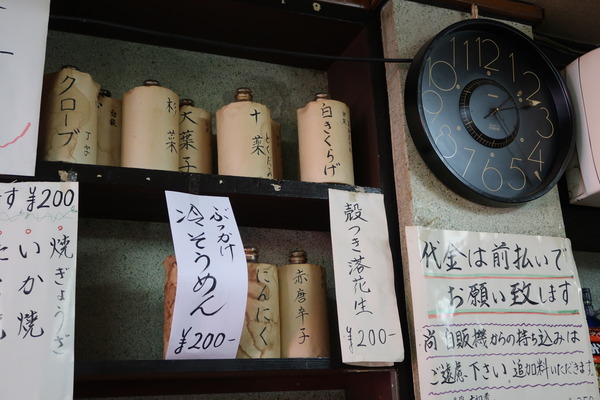 クローブ
丁字
杉菜
大葉子
十薬
どくだみ
白きくらげ
す ¥200
焼ぎょうざ
いか焼
ぶっかけ
冷そうめん
¥200-
にんにく
赤唐辛子
殻つき落花生
¥200-
10 11 12 1 2 3 4 5 6 7
代金は前払いで
お願い致します
尚自販機からの持ち込みは
ご遠慮下さい。追加料いただきます。